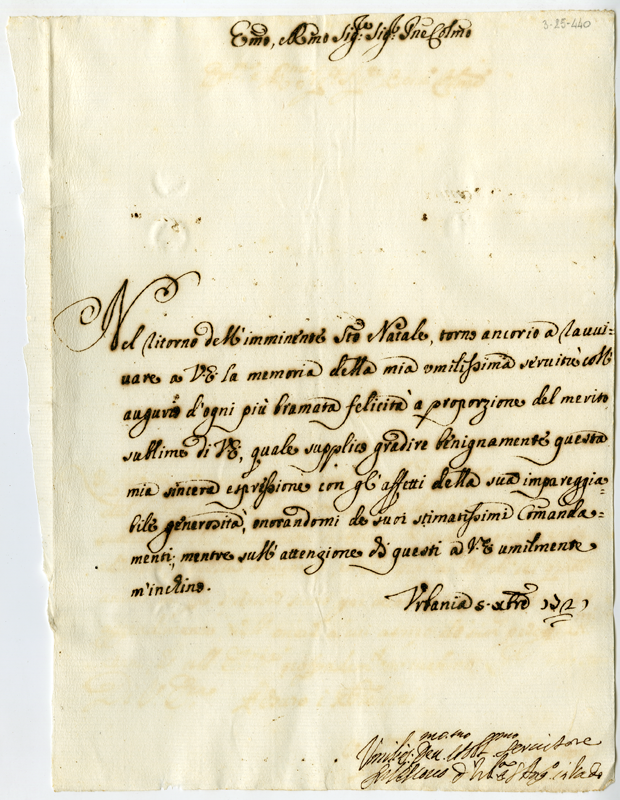 3-25-440
Emo, e Rmo Sig.re Sig.re Pne Colmo
Nel ritorno dell'imminente Sto Natale, torno ancor io a ravvi-
vare a V.E. la memoria della mia umilissima servitù coll'
augurio d'ogni più bramata felicità a proporzione del merito
sublime di V.E., quale supplico gradire benignamente questa
mia sincera espressione con gl'affetti della sua impareggia-
bile generosità, onorandomi de suoi stimatissimi Comanda-
menti; mentre sull'attenzione di questi a V.E. umilmente
m'inchino.
Urbania 8. xbre 1721
Umilis.mo Dev.mo Obbl.mo Servitore